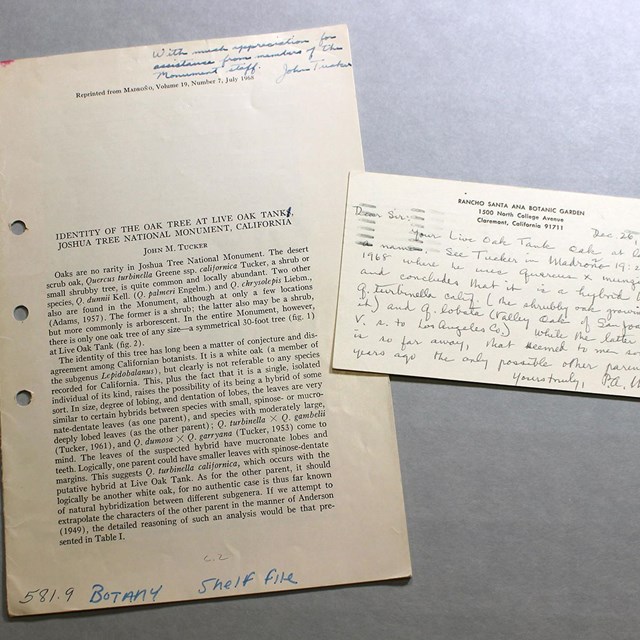 With much appreciation for
assistance from members of the
Monument staff. John Tucker
Reprinted from MADROÑO, Volume 19, Number 7, July 1968
IDENTITY OF THE OAK TREE AT LIVE OAK TANK,
JOSHUA TREE NATIONAL MONUMENT, CALIFORNIA
JOHN M. TUCKER
Oaks are no rarity in Joshua Tree National Monument. The desert
scrub oak, Quercus turbinella Greene ssp. californica Tucker, a shrub or
small shrubby tree, is quite common and locally abundant. Two other
species, Q. dunnii Kell. (Q. palmeri Engelm.) and Q. chrysolepis Liebm.,
also are found in the Monument, although at only a few locations
(Adams, 1957). The former is a shrub; the latter also may be a shrub,
but more commonly is arborescent. In the entire Monument, however,
there is only one oak tree of any size—a symmetrical 30-foot tree (fig. 1)
at Live Oak Tank (fig. 2).
The identity of this tree has long been a matter of conjecture and dis-
agreement among Californian botanists. It is a white oak (a member of
the subgenus Lepidobalanus), but clearly not referable to any species
recorded for California. This, plus the fact that it is a single, isolated
individual of its kind, raises the possibility of its being a hybrid of some
sort. In size, degree of lobing, and dentation of lobes, the leaves are very
similar to certain hybrids between species with small, spinose- or mucro-
nate-dentate leaves (as one parent), and species with moderately large,
deeply lobed leaves (as the other parent); Q. turbinella × Q. gambelii
(Tucker, 1961), and Q. dumosa × Q. garryana (Tucker, 1953) come to
mind. The leaves of the suspected hybrid have mucronate lobes and
teeth. Logically, one parent could have smaller leaves with spinose-dentate
margins. This suggests Q. turbinella californica, which occurs with the
putative hybrid at Live Oak Tank. As for the other parent, it should
logically be another white oak, for no authentic case is thus far known
of natural hybridization between different subgenera. If we attempt to
extrapolate the characters of the other parent in the manner of Anderson
(1949), the detailed reasoning of such an analysis would be that pre-
sented in Table I.
c.2
581.9 BOTANY Shelf File
RANCHO SANTA ANA BOTANIC GARDEN
1500 North College Avenue
Claremont, California 91711
Dec 26
Dear Sir:
Your Live Oak Tank oak at la
a name. See Tucker in Madroño 19:
1968 where he uses Quercus x munz
and concludes that it is a hybrid
Q. turbinella calif. (the shrubby oak growin
it) and Q. lobata (Valley Oak of San Jo
V. s. to Los Angeles Co.) While the latter
is so far away, that seemed to me so
years ago the only possible other paren
Yours truly, P.A.